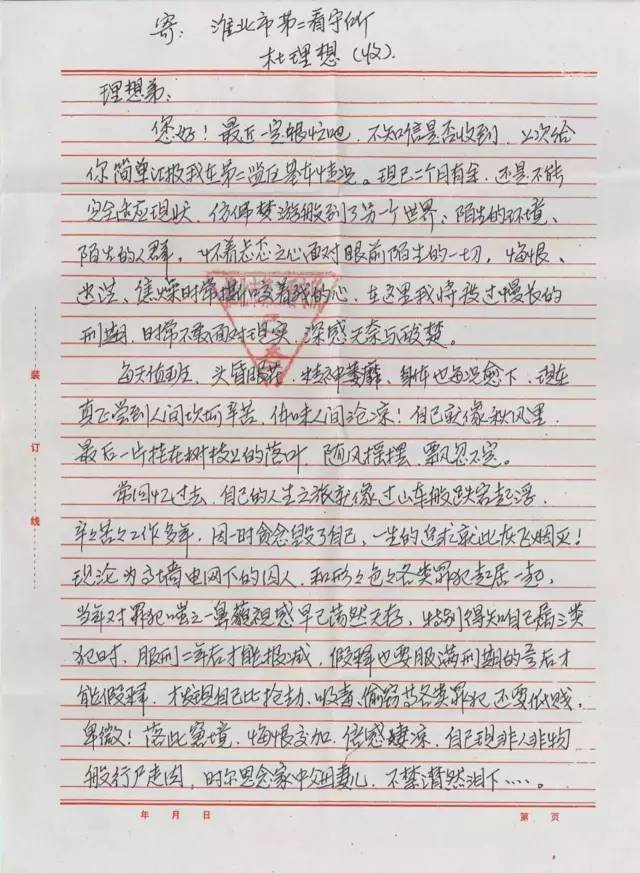 寄：淮北市第二看守所
杜理想（收）.
理想弟：
您好！最近一定很忙吧，不知信是否收到，上次给
你简单汇报我在第三监区基本情况。现已二个月有余，还是不能
完全适应现状，仿佛梦游般到了另一个世界、陌生的环境、
陌生的人群，怀着忐忑之心面对眼前陌生的一切，悔恨、
迷茫、焦燥时常撕咬着我的心，在这里我将渡过慢长的
刑期，时常不敢面对现实，深感无奈与酸楚。
每天值班，头昏眼花，精神萎靡、身体也每况愈下，现在
真正尝到人间坎坷辛苦，体味人间沧凉！自己就像秋风里
最后一片挂在树枝上的落叶，随风摇摆，飘忽不定。
常回忆过去，自己的人生之旅就像过山车般跌宕起浮，
辛辛苦苦工作多年，因一时贪念毁了自己，一生的追求就此灰飞烟灭！
现沦为高墙电网下的囚人，和形形色色各类罪犯起居一起，
当年对罪犯嗤之一鼻藐视感早已荡然无存，特别得知自己属三类
犯时，服刑二年后才能报减，假释也要服满刑期的 后才
能假释，才发现自己比抢劫、吸毒、偷窃等各类罪犯还要低贱、
卑微！落此窘境，悔恨交加，倍感凄凉，自己现非人非物
般行尸走肉，时尔思念家中父母妻儿，不禁潸然泪下……。
装
订
线
年 月 日
第 页